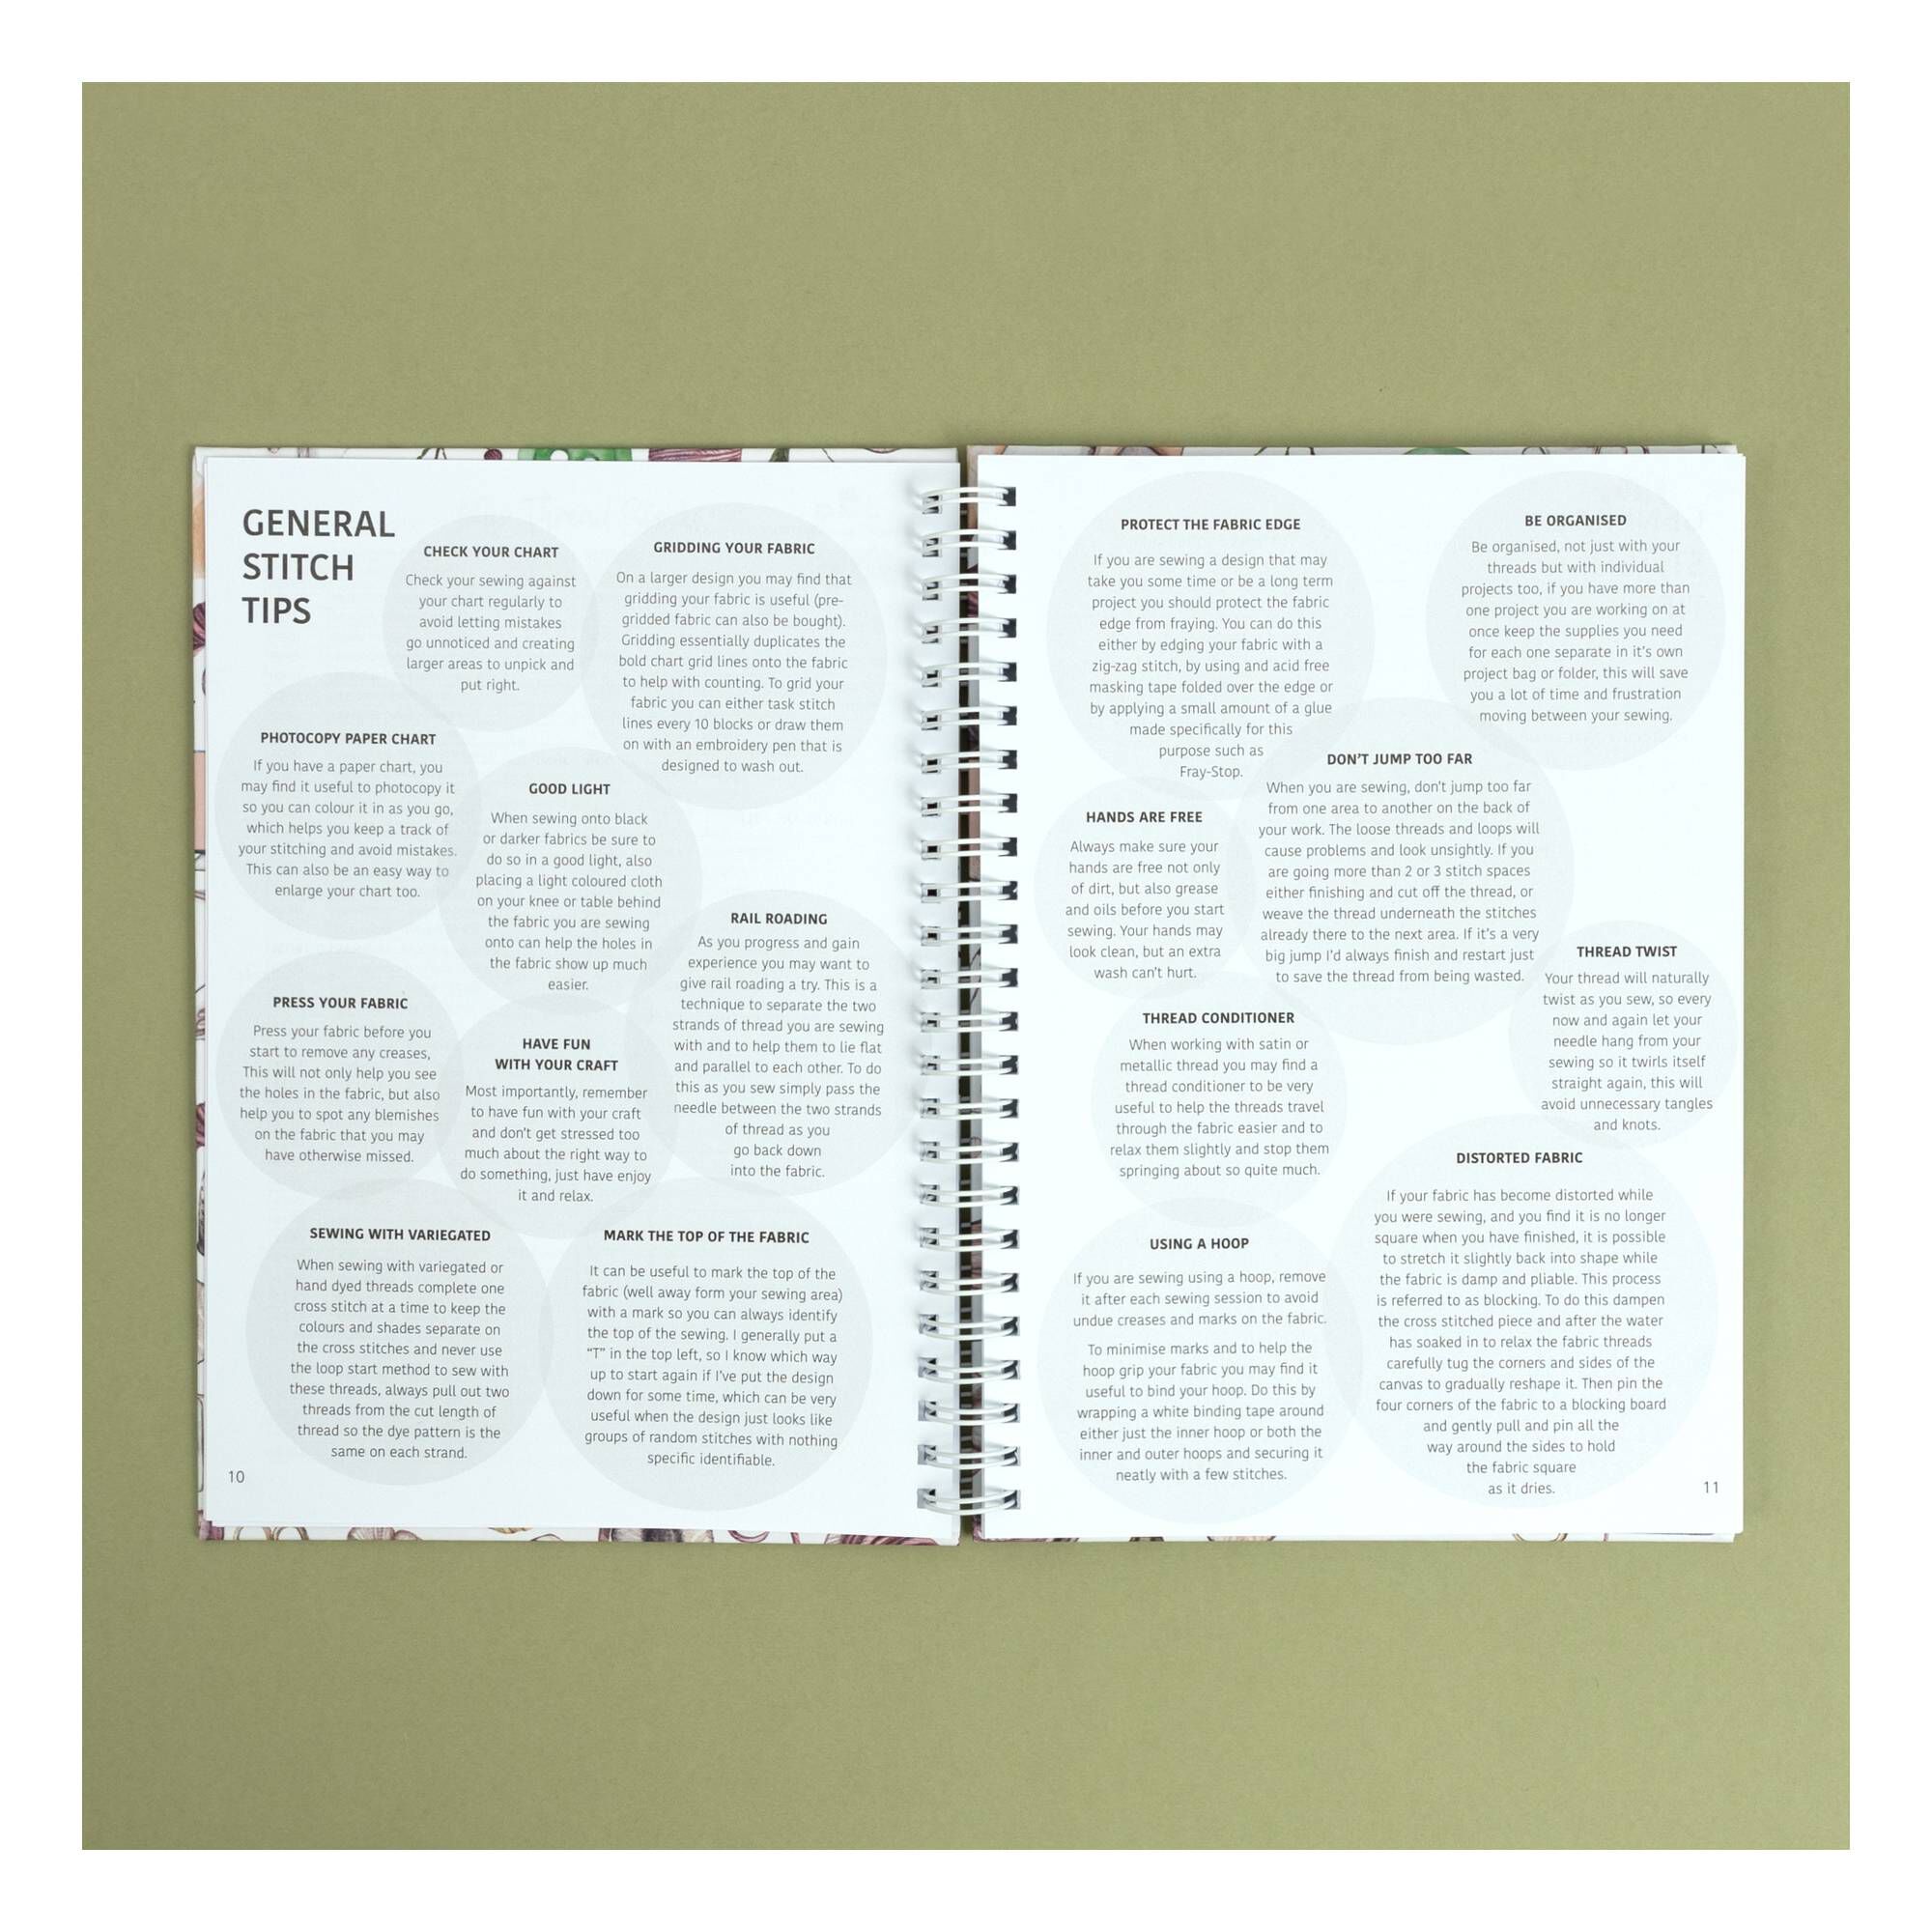 GENERAL
STITCH
TIPS
CHECK YOUR CHART
Check your sewing against
your chart regularly to
avoid letting mistakes
go unnoticed and creating
larger areas to unpick and
put right.
GRIDDING YOUR FABRIC
On a larger design you may find that
gridding your fabric is useful (pre-
gridded fabric can also be bought).
Gridding essentially duplicates the
bold chart grid lines onto the fabric
to help with counting. To grid your
fabric you can either task stitch
lines every 10 blocks or draw them
on with an embroidery pen that is
designed to wash out.
PHOTOCOPY PAPER CHART
If you have a paper chart, you
may find it useful to photocopy it
so you can colour it in as you go,
which helps you keep a track of
your stitching and avoid mistakes.
This can also be an easy way to
enlarge your chart too.
GOOD LIGHT
When sewing onto black
or darker fabrics be sure to
do so in a good light, also
placing a light coloured cloth
on your knee or table behind
the fabric you are sewing
onto can help the holes in
the fabric show up much
easier.
RAIL ROADING
As you progress and gain
experience you may want to
give rail roading a try. This is a
technique to separate the two
strands of thread you are sewing
with and to help them to lie flat
and parallel to each other. To do
this as you sew simply pass the
needle between the two strands
of thread as you
go back down
into the fabric.
PRESS YOUR FABRIC
Press your fabric before you
start to remove any creases,
This will not only help you see
the holes in the fabric, but also
help you to spot any blemishes
on the fabric that you may
have otherwise missed.
HAVE FUN
WITH YOUR CRAFT
Most importantly, remember
to have fun with your craft
and don't get stressed too
much about the right way to
do something, just have enjoy
it and relax.
SEWING WITH VARIEGATED
When sewing with variegated or
hand dyed threads complete one
cross stitch at a time to keep the
colours and shades separate on
the cross stitches and never use
the loop start method to sew with
these threads, always pull out two
threads from the cut length of
thread so the dye pattern is the
same on each strand.
MARK THE TOP OF THE FABRIC
It can be useful to mark the top of the
fabric (well away form your sewing area)
with a mark so you can always identify
the top of the sewing. I generally put a
“T” in the top left, so I know which way
up to start again if I've put the design
down for some time, which can be very
useful when the design just looks like
groups of random stitches with nothing
specific identifiable.
10
PROTECT THE FABRIC EDGE
If you are sewing a design that may
take you some time or be a long term
project you should protect the fabric
edge from fraying. You can do this
either by edging your fabric with a
zig-zag stitch, by using and acid free
masking tape folded over the edge or
by applying a small amount of a glue
made specifically for this
purpose such as
Fray-Stop.
BE ORGANISED
Be organised, not just with your
threads but with individual
projects too, if you have more than
one project you are working on at
once keep the supplies you need
for each one separate in it's own
project bag or folder, this will save
you a lot of time and frustration
moving between your sewing.
DON'T JUMP TOO FAR
When you are sewing, don't jump too far
from one area to another on the back of
your work. The loose threads and loops will
cause problems and look unsightly. If you
are going more than 2 or 3 stitch spaces
either finishing and cut off the thread, or
weave the thread underneath the stitches
already there to the next area. If it's a very
big jump I'd always finish and restart just
to save the thread from being wasted.
HANDS ARE FREE
Always make sure your
hands are free not only
of dirt, but also grease
and oils before you start
sewing. Your hands may
look clean, but an extra
wash can't hurt.
THREAD TWIST
Your thread will naturally
twist as you sew, so every
now and again let your
needle hang from your
sewing so it twirls itself
straight again, this will
avoid unnecessary tangles
and knots.
THREAD CONDITIONER
When working with satin or
metallic thread you may find a
thread conditioner to be very
useful to help the threads travel
through the fabric easier and to
relax them slightly and stop them
springing about so quite much.
DISTORTED FABRIC
If your fabric has become distorted while
you were sewing, and you find it is no longer
square when you have finished, it is possible
to stretch it slightly back into shape while
the fabric is damp and pliable. This process
is referred to as blocking. To do this dampen
the cross stitched piece and after the water
has soaked in to relax the fabric threads
carefully tug the corners and sides of the
canvas to gradually reshape it. Then pin the
four corners of the fabric to a blocking board
and gently pull and pin all the
way around the sides to hold
the fabric square
as it dries.
USING A HOOP
If you are sewing using a hoop, remove
it after each sewing session to avoid
undue creases and marks on the fabric.
To minimise marks and to help the
hoop grip your fabric you may find it
useful to bind your hoop. Do this by
wrapping a white binding tape around
either just the inner hoop or both the
inner and outer hoops and securing it
neatly with a few stitches.
11